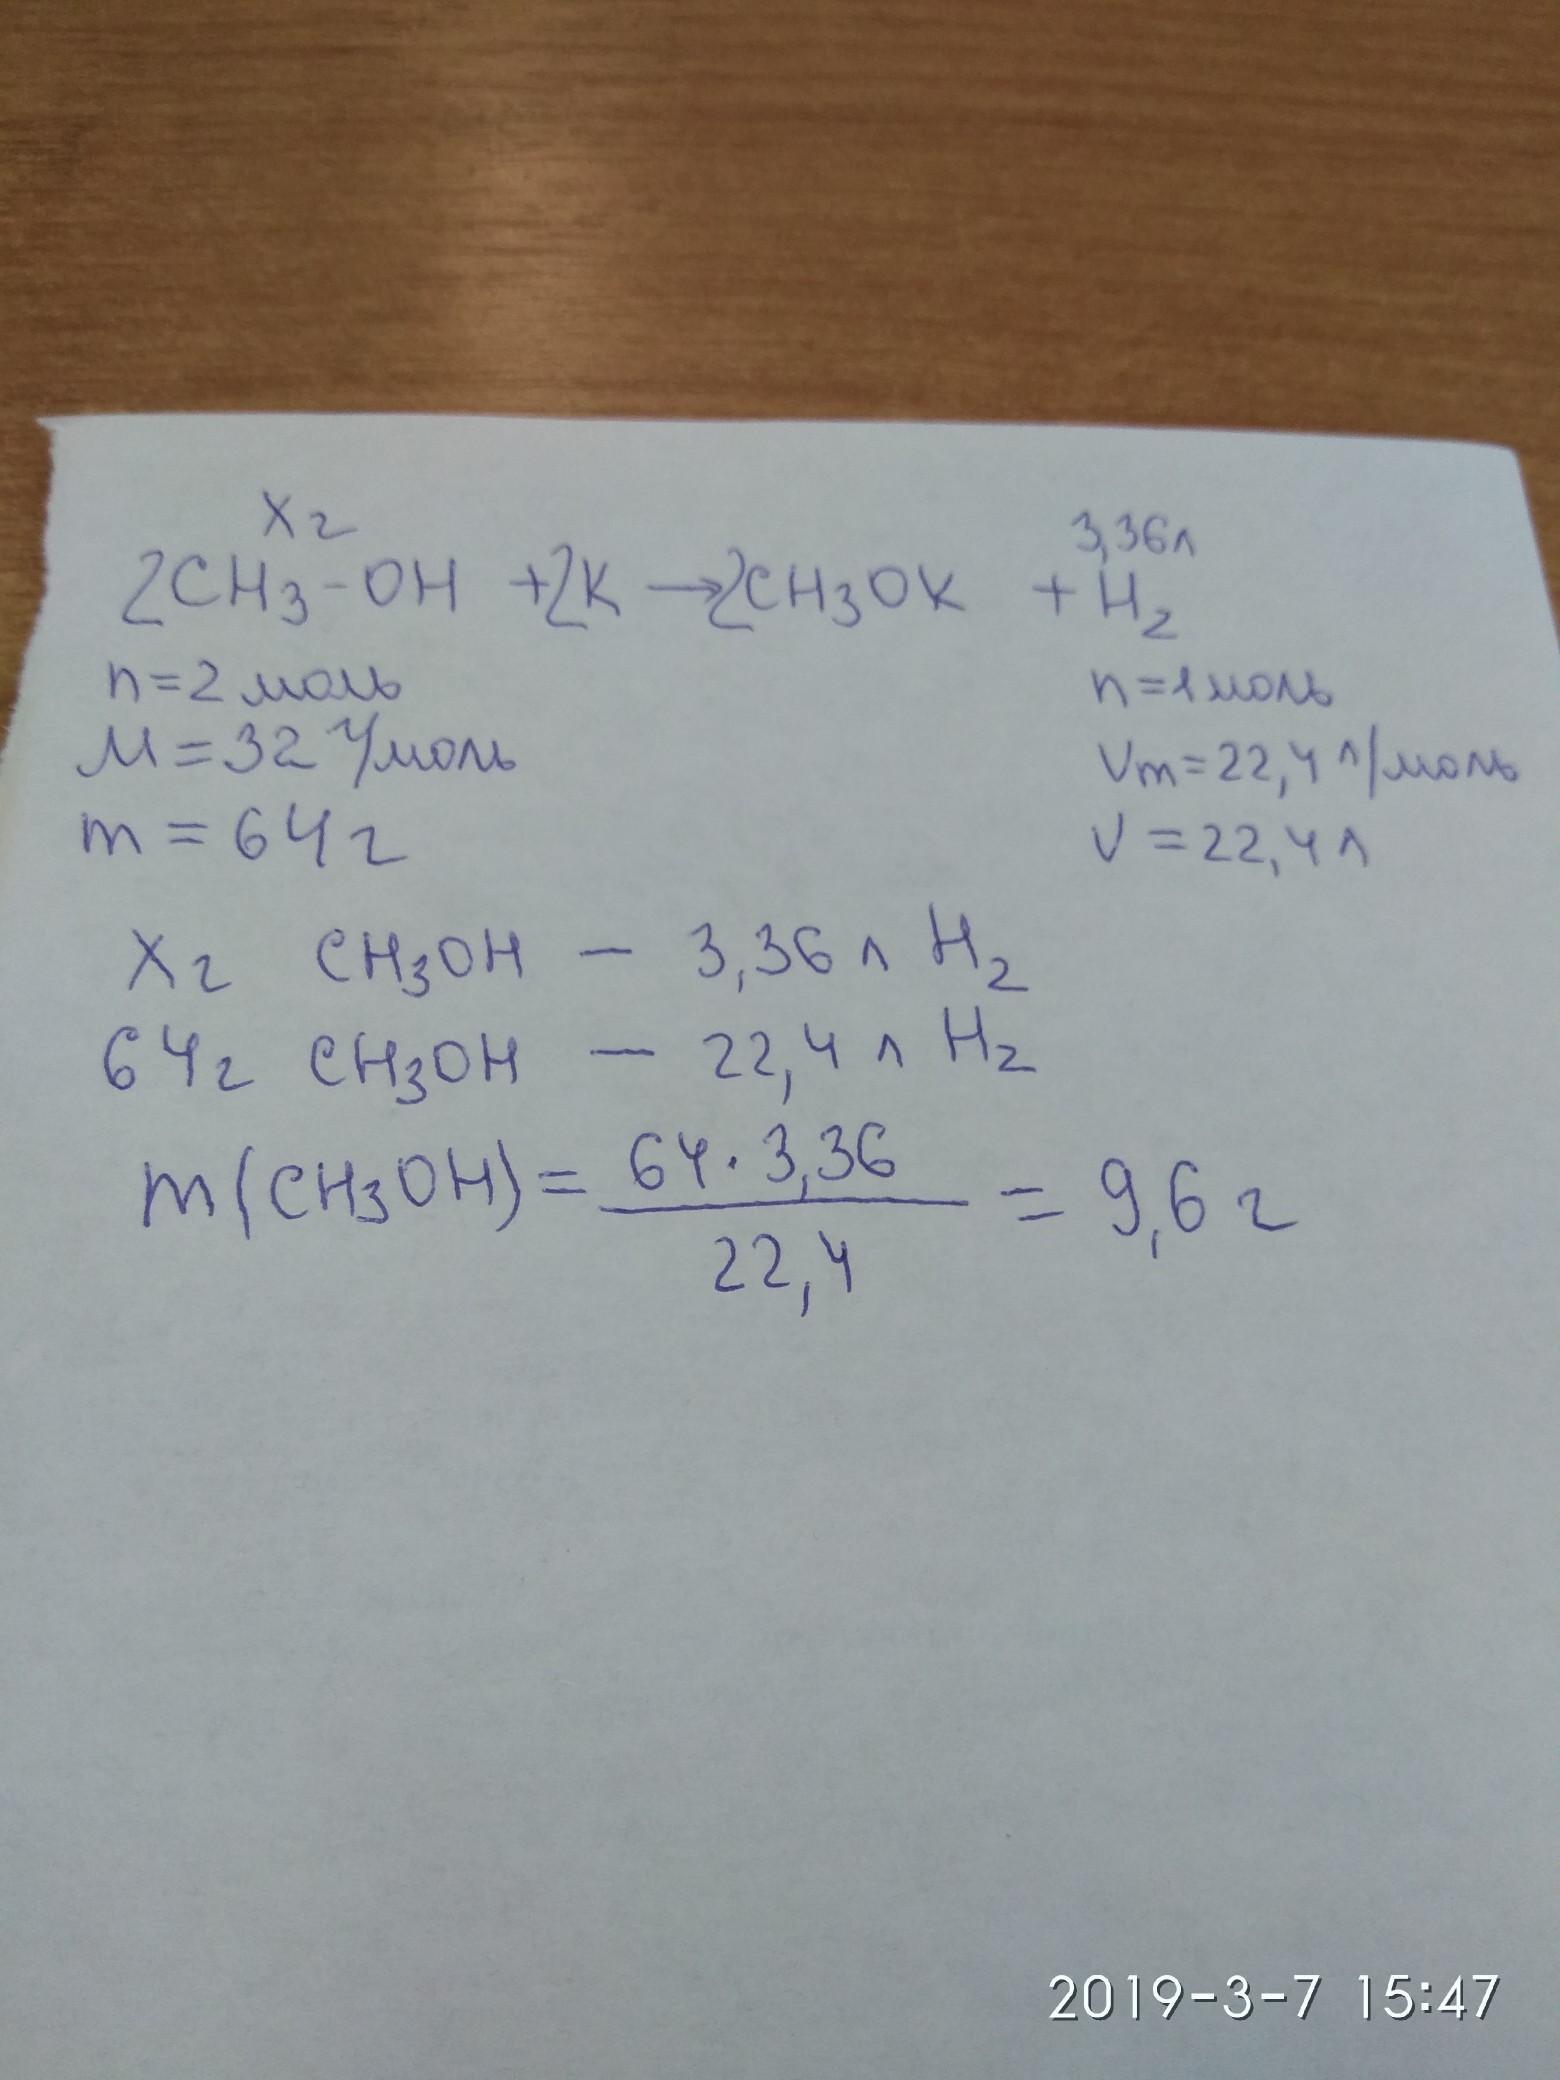 Xг 3,36л
2CH3-OH +2K →2CH3OK + H2
n=2 моль n=1моль
M=32 г/моль Vm=22,4 л/моль
m=64г V=22,4л
Xг CH3OH – 3,36 л H2
64г CH3OH – 22,4 л H2
m(CH3OH)= 64·3,36 / 22,4 = 9,6 г
2019-3-7 15:47